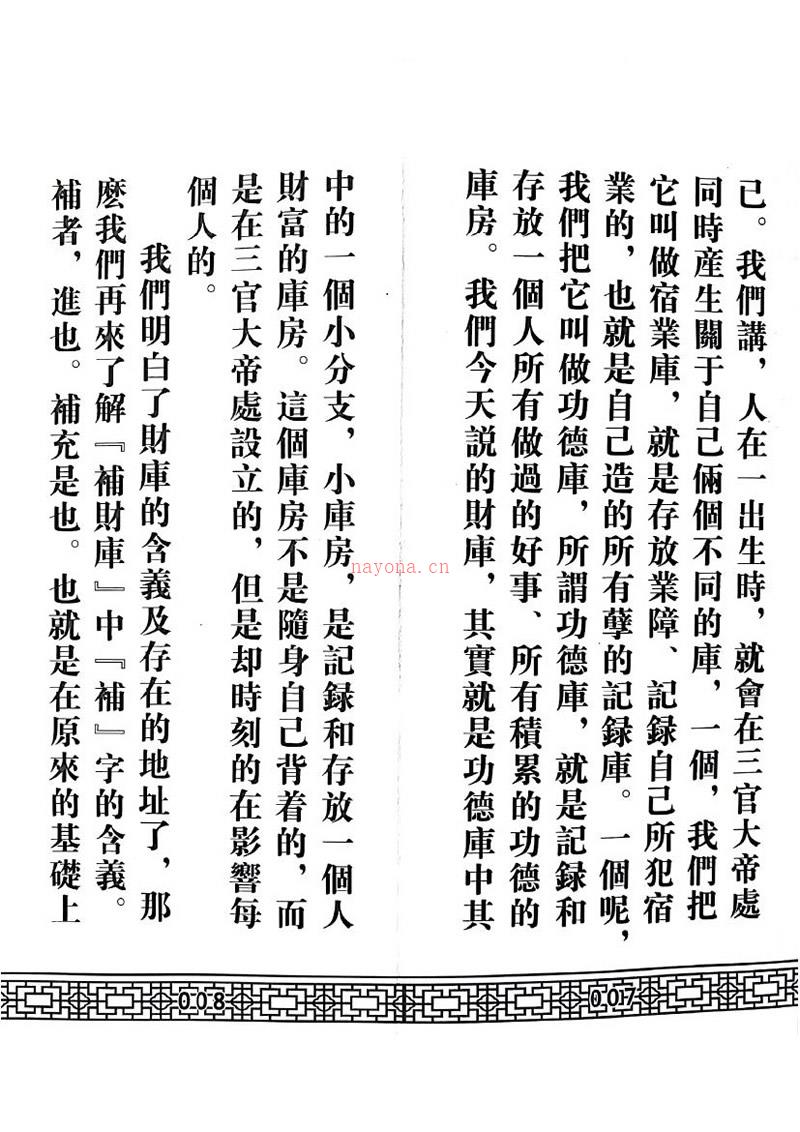 己。我們講，人在一出生時，就會在三官大帝處
同時産生關于自己倆個不同的庫，一個，我們把
它叫做宿業庫，就是存放業障、記録自己所犯宿
業的，也就是自己造的所有孽的記録庫。一個呢，
我們把它叫做功德庫，所謂功德庫，就是記録和
存放一個人所有做過的好事、所有積累的功德的
庫房。我們今天説的財庫，其實就是功德庫中其
007
中的一個小分支，小庫房，是記録和存放一個人
財富的庫房。這個庫房不是隨身自己背着的，而
是在三官大帝處設立的，但是却時刻的在影響每
個人的。
我們明白了財庫的含義及存在的地址了，那
麽我們再來了解『補財庫』中『補』字的含義。
補者，進也。補充是也。也就是在原來的基礎上
008
nayona.cn